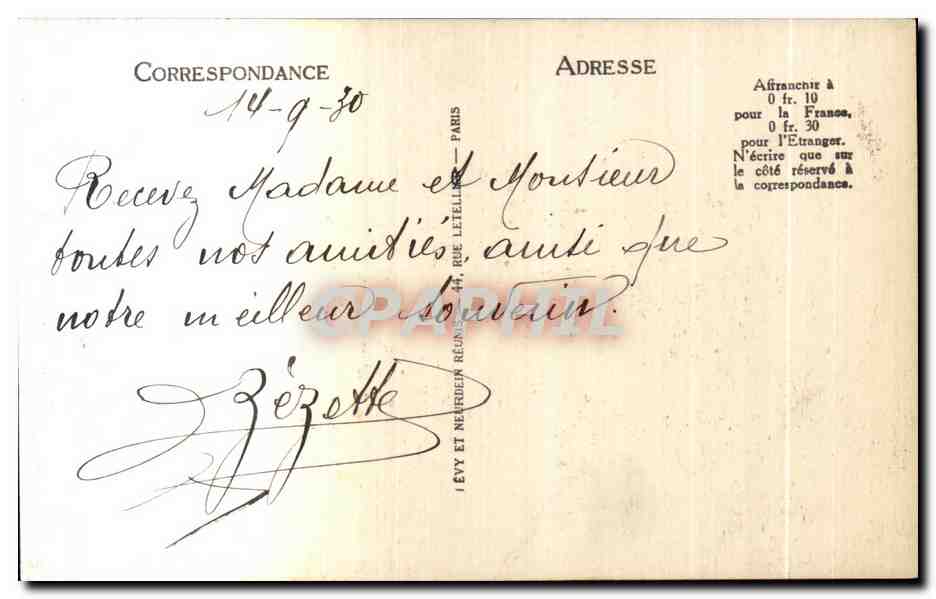 CORRESPONDANCE
ADRESSE
Affranchir à
0 fr. 10
pour la France,
0 fr. 30
pour l'Etranger.
N'écrire que sur
le côté réservé à
la correspondance.
14-9-30
Recevez Madame et Monsieur
toutes nos amitiés, ainsi que
notre meilleur souvenir.
Zézette
LÉVY ET NEURDEIN RÉUNIS, 44, RUE LETELLIER — PARIS
CPAPHIL